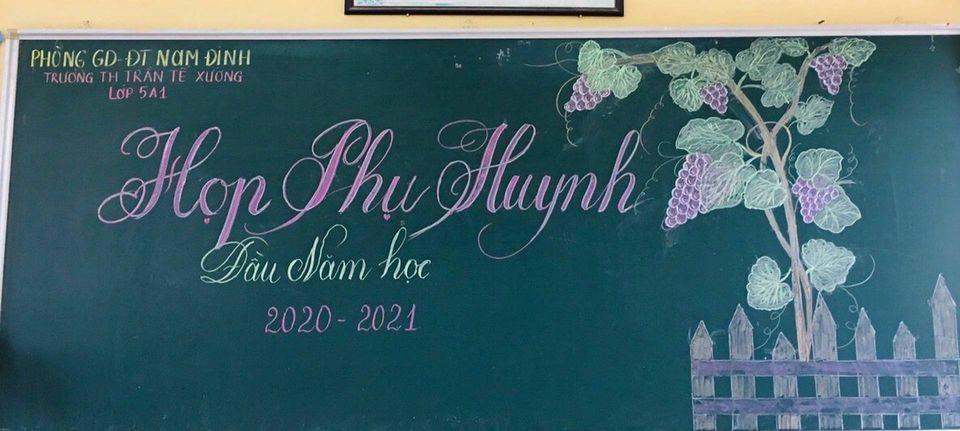 PHÒNG GD-ĐT NAM ĐỊNH
TRƯỜNG TH TRẦN TẾ XƯƠNG
LỚP 5A1
Họp Phụ Huynh
Đầu Năm học
2020 - 2021